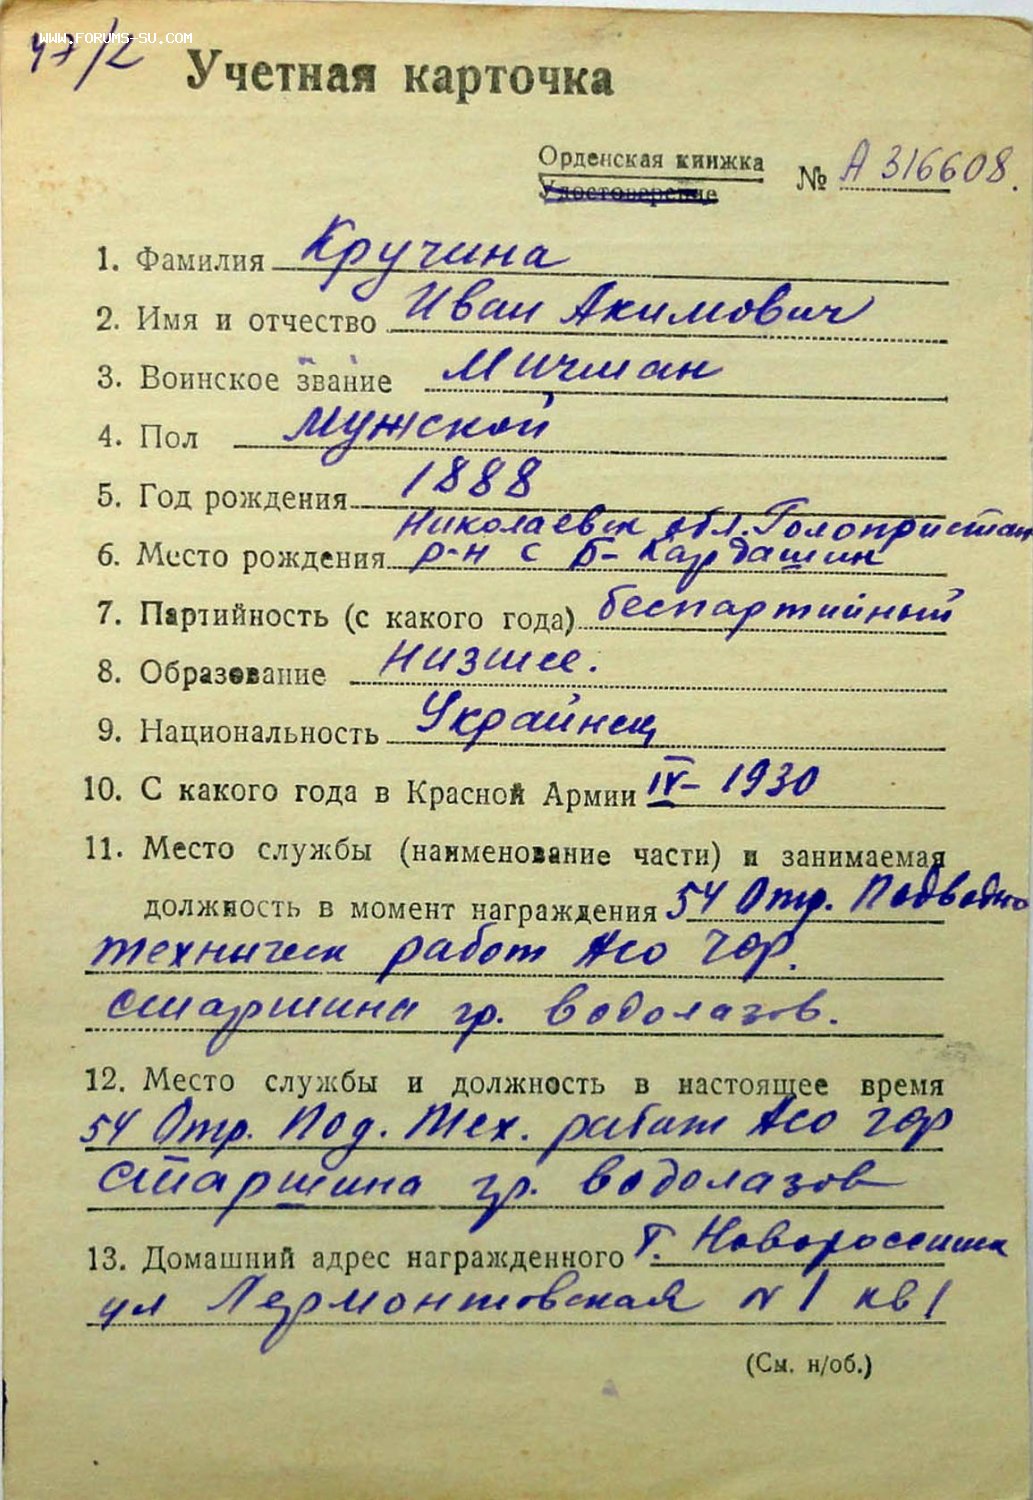 WWW.FORUMS-SU.COM
47/2
Учетная карточка
Орденская книжка
Удостоверение
№ А 316608.
1. Фамилия Кручина
2. Имя и отчество Иван Акимович
3. Воинское звание Мичман
4. Пол мужской
5. Год рождения 1888
Николаевск обл. Голопристан
6. Место рождения р-н с Б-Кардашин
7. Партийность (с какого года) беспартийный
8. Образование низшее.
9. Национальность Украинец
10. С какого года в Красной Армии IV-1930
11. Место службы (наименование части) и занимаемая
должность в момент награждения 54 Отр. Подводно
техническ работ АСО ЧФ.
старшина гр. водолазов.
12. Место службы и должность в настоящее время
54 Отр. Под. Тех. работ АСО ЧФ
старшина гр. водолазов
13. Домашний адрес награжденного г. Новороссийск
ул Лермонтовская № 1 кв 1
(См. н/об.)